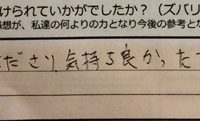 けられていかがでしたか？（ズバリ
感想が、私達の何よりの力となり今後の参考とな
ださり、気持ち良かったで